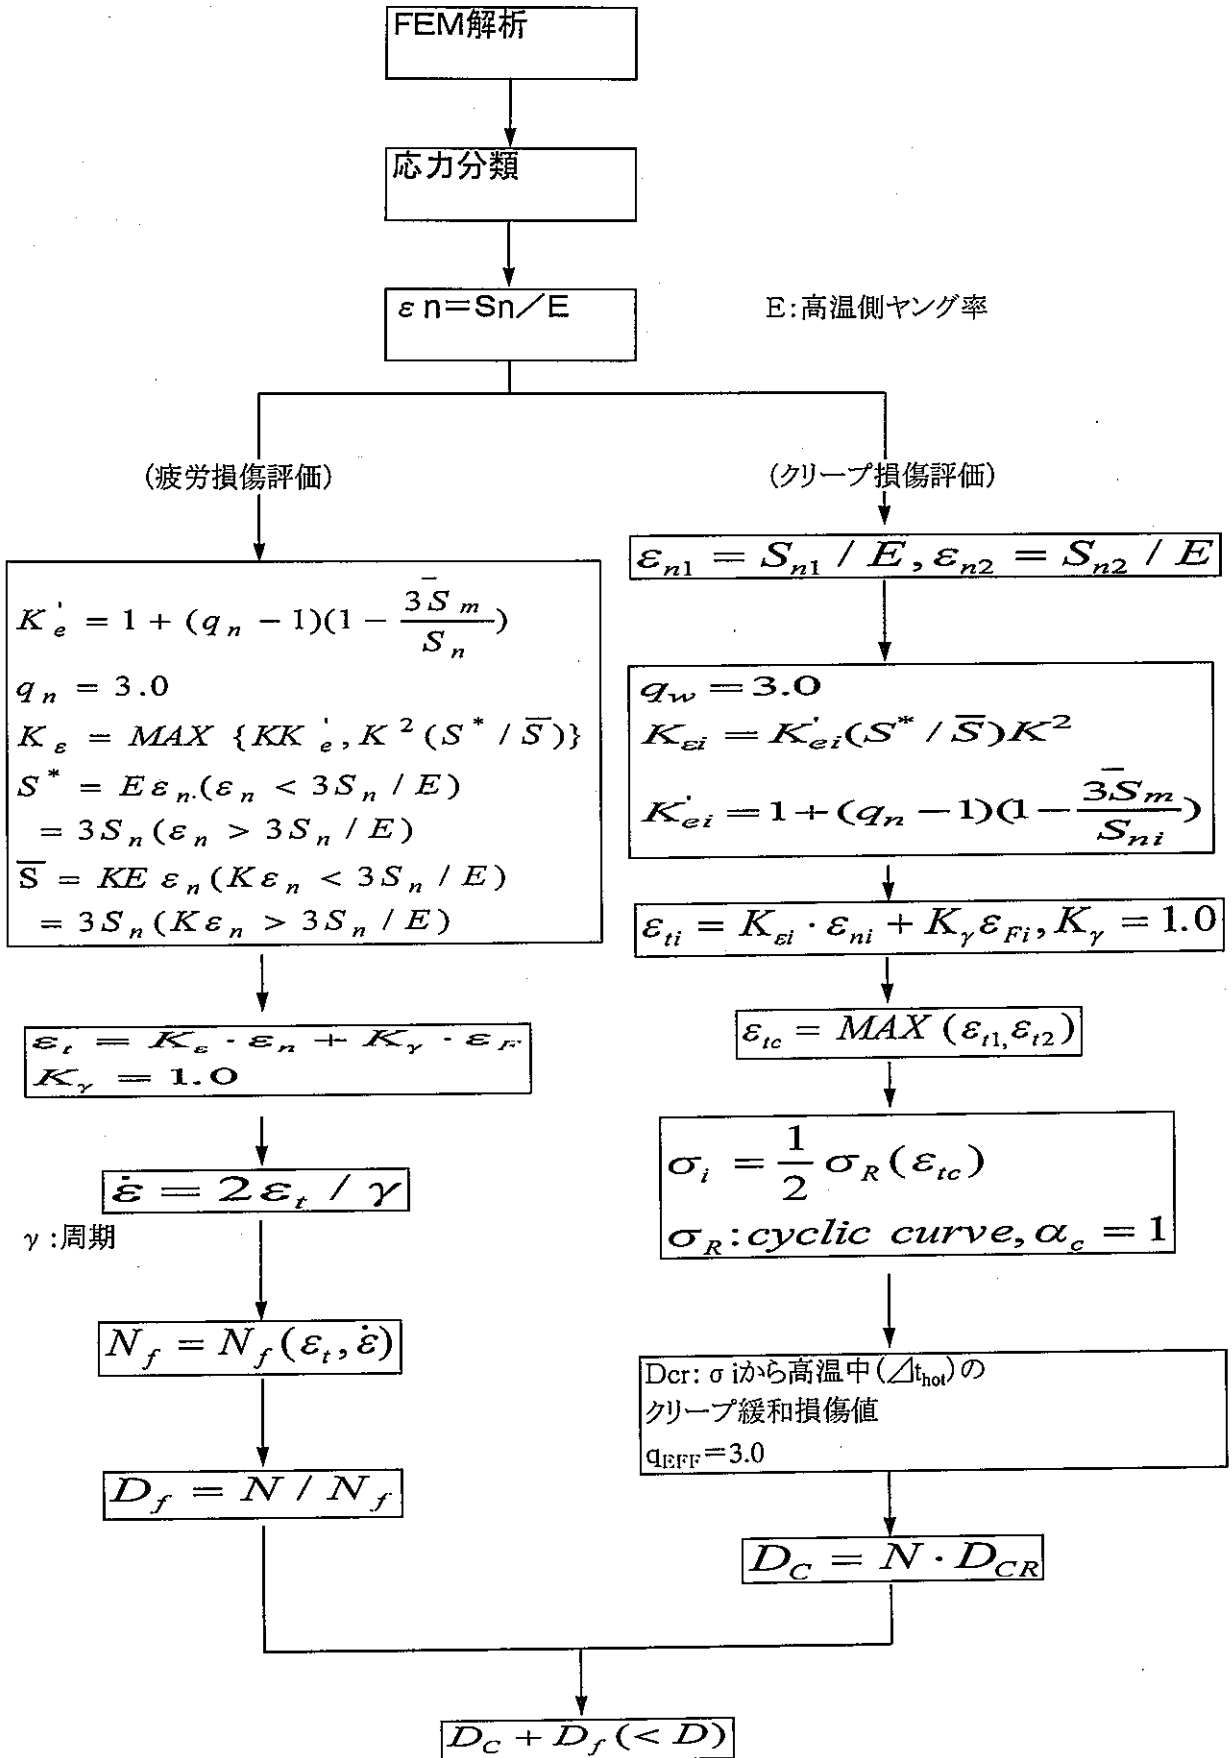 FEM解析
応力分類
εn=Sn/E
E:高温側ヤング率
(疲労損傷評価)
K'_e = 1 + (q_n − 1)(1 − 3S̄_m / S_n)
q_n = 3.0
K_ε = MAX {KK'_e, K^2 (S^* / S̄)}
S^* = Eε_n.(ε_n < 3S_n / E)
= 3S_n (ε_n > 3S_n / E)
S̄ = KE ε_n (Kε_n < 3S_n / E)
= 3S_n (Kε_n > 3S_n / E)
ε_t = K_ε · ε_n + K_γ · ε_F
K_γ = 1.0
ε̇ = 2ε_t / γ
γ:周期
N_f = N_f (ε_t, ε̇)
D_f = N / N_f
(クリープ損傷評価)
ε_n1 = S_n1 / E, ε_n2 = S_n2 / E
q_w = 3.0
K_εi = K'_ei (S^* / S̄)K^2
K'_ei = 1 + (q_n − 1)(1 − 3S̄_m / S_ni)
ε_ti = K_εi · ε_ni + K_γ ε_Fi, K_γ = 1.0
ε_tc = MAX (ε_t1, ε_t2)
σ_i = 1/2 σ_R (ε_tc)
σ_R: cyclic curve, α_c = 1
Dcr: σiから高温中(⊿t_hot)の
クリープ緩和損傷値
q_EFF=3.0
D_C = N · D_CR
D_C + D_f (< D)